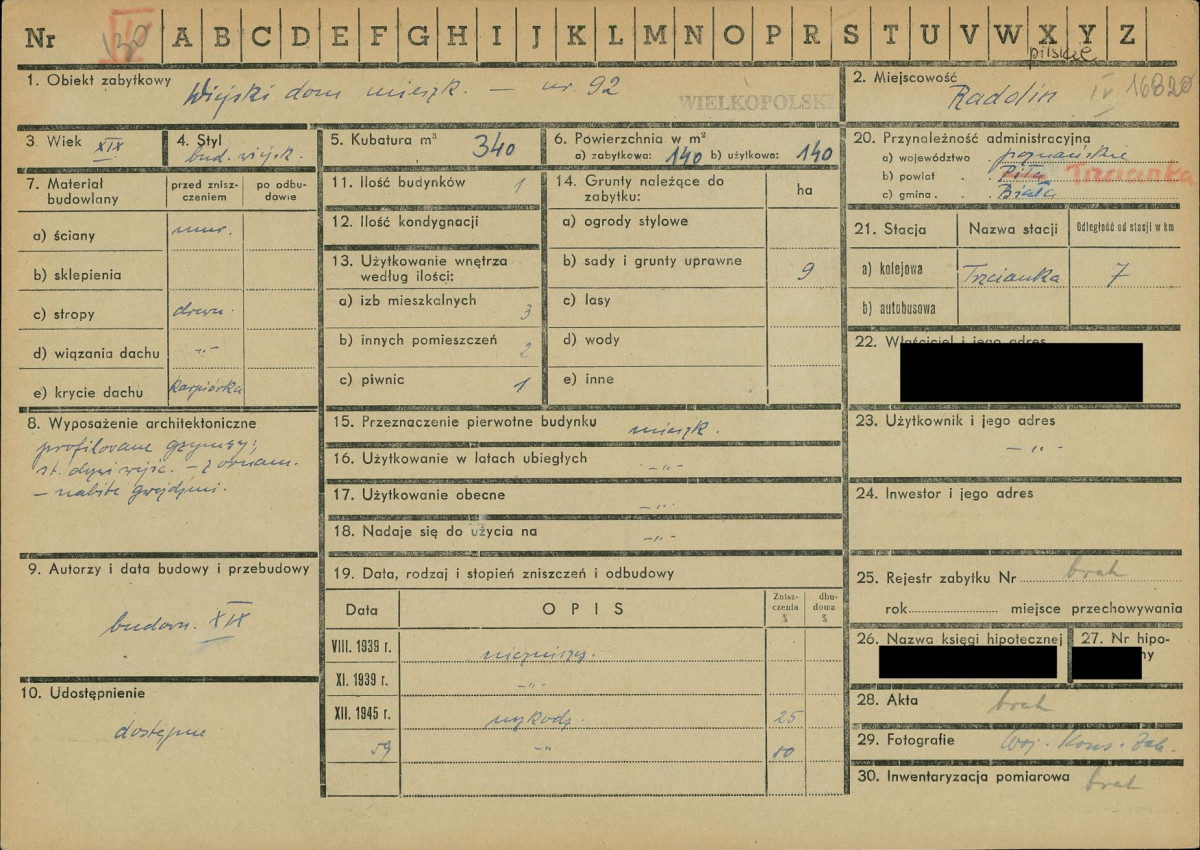 Nr A B C D E F G H I J K L M N O P R S T U V W X Y Z
pilskie
1. Obiekt zabytkowy
Wiejski dom mieszk. — nr. 92
WIELKOPOLSKI
2. Miejscowość
Radolin IV 16820
3. Wiek XIX
4. Styl
bud. wiejsk.
5. Kubatura m³ 340
6. Powierzchnia w m²
a) zabytkowa: 140 b) użytkowa: 140
20. Przynależność administracyjna
a) województwo poznańskie
b) powiat Piła Trzcianka
c) gmina Biała
7. Materiał budowlany
przed zniszczeniem
po odbudowie
a) ściany mur.
b) sklepienia
c) stropy drewn.
d) wiązania dachu -„-
e) krycie dachu karpiówka
11. Ilość budynków 1
12. Ilość kondygnacji
13. Użytkowanie wnętrza
według ilości:
a) izb mieszkalnych 3
b) innych pomieszczeń 2
c) piwnic 1
14. Grunty należące do
zabytku:
ha
a) ogrody stylowe
b) sady i grunty uprawne 9
c) lasy
d) wody
e) inne
21. Stacja Nazwa stacji Odległość od stacji w km
a) kolejowa Trzcianka 7
b) autobusowa
22. Właściciel i jego adres
8. Wyposażenie architektoniczne
profilowane gzymsy;
st. drzwi wejśc. — z ornam.
— nabite gwoźdźmi.
15. Przeznaczenie pierwotne budynku mieszk.
16. Użytkowanie w latach ubiegłych -„-
17. Użytkowanie obecne -„-
18. Nadaje się do użycia na -„-
23. Użytkownik i jego adres
-„-
24. Inwestor i jego adres
9. Autorzy i data budowy i przebudowy
budown. XIX
10. Udostępnienie
dostępne
19. Data, rodzaj i stopień zniszczeń i odbudowy
Data OPIS Zniszczenia % dbudowa %
VIII. 1939 r. niezniszcz.
XI. 1939 r. -„-
XII. 1945 r. uszkodz. 25
59 -„- 50
25. Rejestr zabytku Nr brak
rok miejsce przechowywania
26. Nazwa księgi hipotecznej
27. Nr hipo-
ny
28. Akta brak
29. Fotografie Woj. Kons. Zab.
30. Inwentaryzacja pomiarowa brak